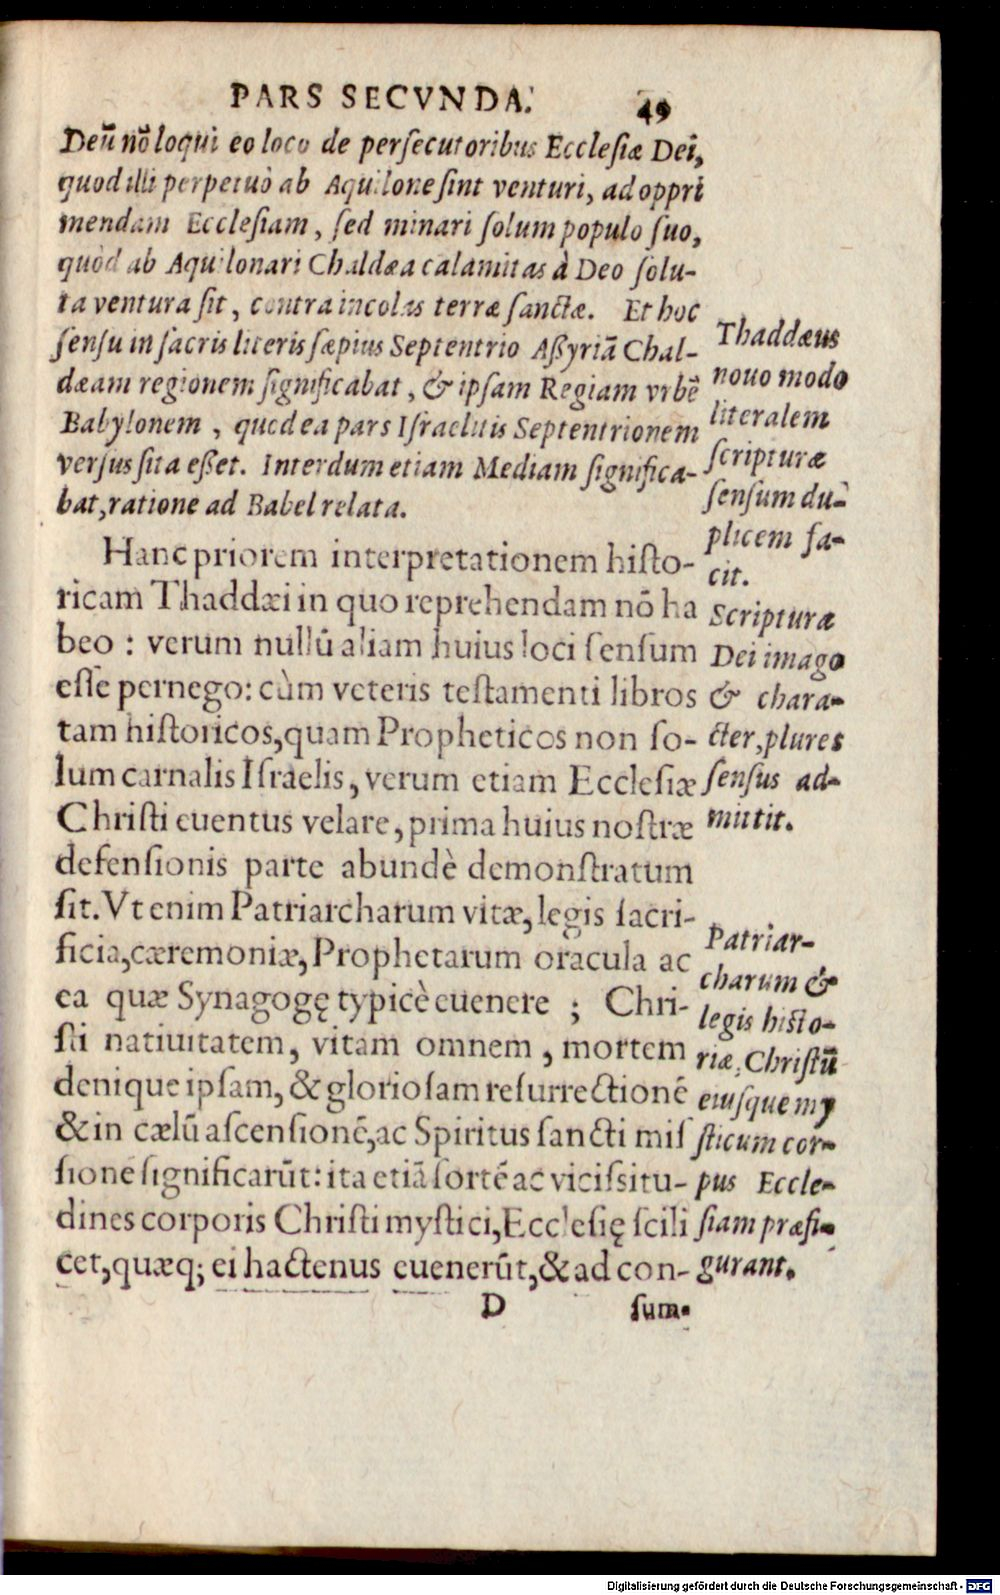 PARS SECVNDA. 49
Deū nō loqui eo loco de persecutoribus Ecclesiæ Dei,
quod illi perpetuò ab Aquilone sint venturi, ad oppri
mendam Ecclesiam, sed minari solum populo suo,
quòd ab Aquilonari Chaldæa calamitas à Deo solu-
ta ventura sit, contra incolas terræ sanctæ. Et hoc
sensu in sacris literis sæpius Septentrio Aßyriā Chal-
dæam regionem significabat, & ipsam Regiam vrbē
Babylonem, quod ea pars Israelitis Septentrionem
versus sita eßet. Interdum etiam Mediam significa-
bat, ratione ad Babel relata.
Hanc priorem interpretationem histo-
ricam Thaddæi in quo reprehendam nō ha
beo : verum nullū aliam huius loci sensum
esse pernego: cùm veteris testamenti libros
tam historicos, quam Propheticos non so-
lum carnalis Israelis, verum etiam Ecclesiæ
Christi euentus velare, prima huius nostræ
defensionis parte abundè demonstratum
sit. Vt enim Patriarcharum vitæ, legis sacri-
ficia, cæremoniæ, Prophetarum oracula ac
ea quæ Synagogę typicè euenere ; Chri-
sti natiuitatem, vitam omnem, mortem
denique ipsam, & gloriosam resurrectionē
& in cælū ascensionē, ac Spiritus sancti mis
sionē significarūt: ita etiā sortē ac vicissitu-
dines corporis Christi mystici, Ecclesię scili
cet, quæq; ei hactenus euenerūt, & ad con-
D sum-
Thaddæus
nouo modo
literalem
scripturæ
sensum du-
plicem fa-
cit.
Scripturæ
Dei imago
& chara-
cter, plures
sensus ad-
mittit.
Patriar-
charum &
legis histo-
riæ, Christū
eiusque my
sticum cor-
pus Eccle-
siam præfi-
gurant.
Digitalisierung gefördert durch die Deutsche Forschungsgemeinschaft - DFG